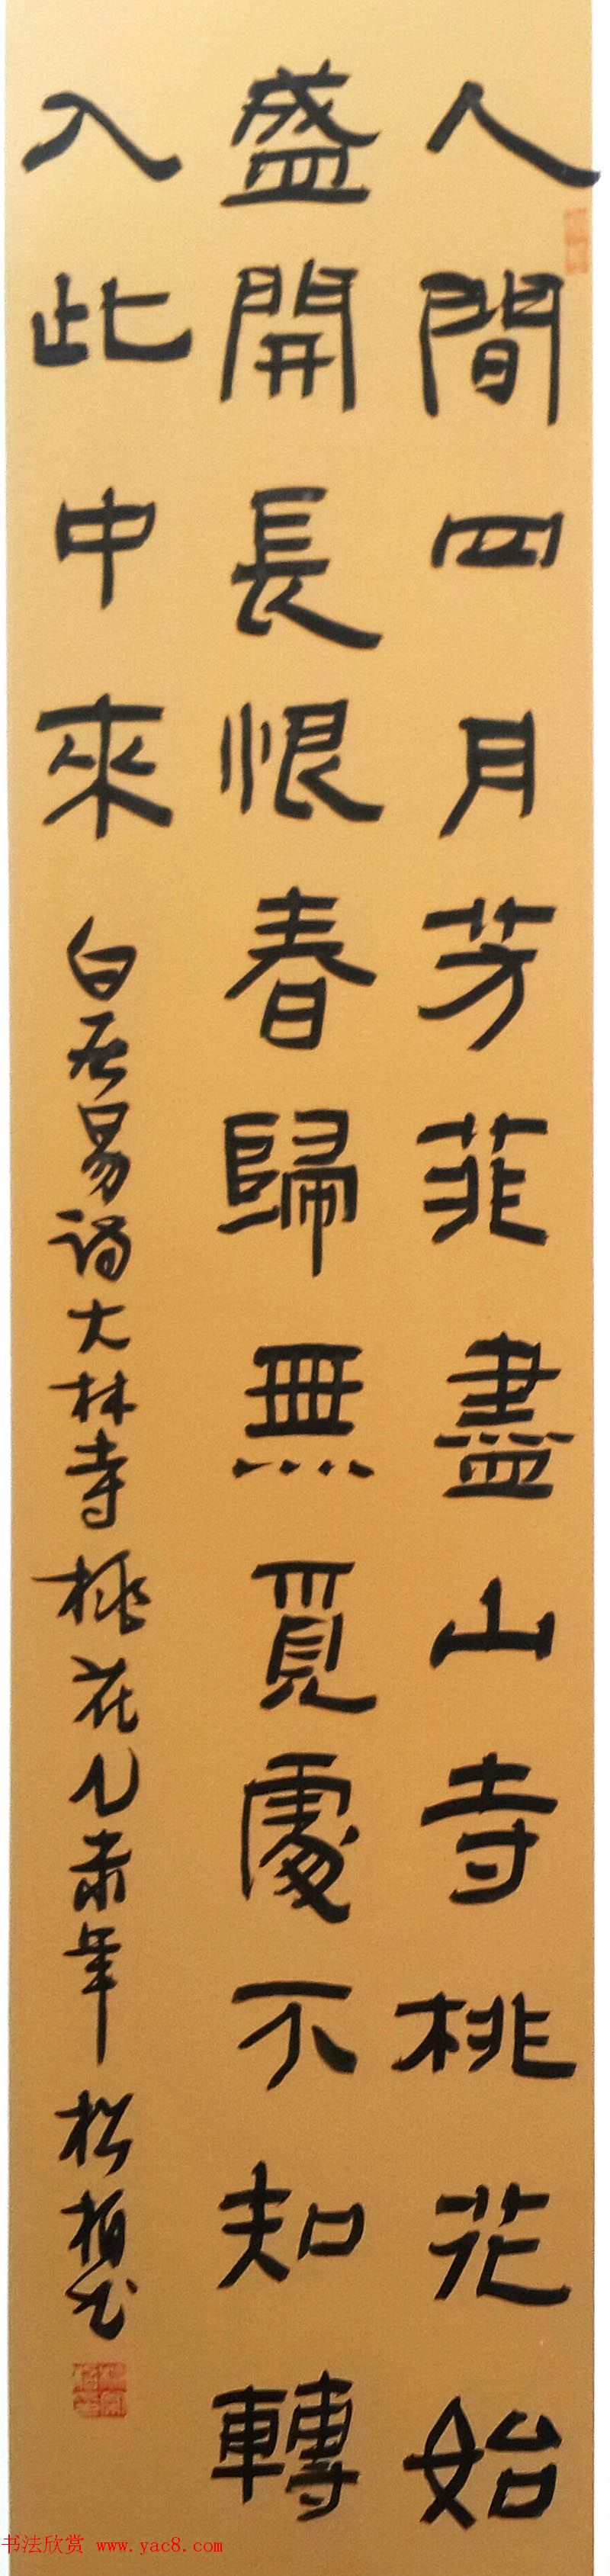 人間四月芳菲盡山寺桃花始
盛開長恨春歸無覓處不知轉
入此中來
白居易詩大林寺桃花乙未年松柏書
书法欣赏 www.yac8.com